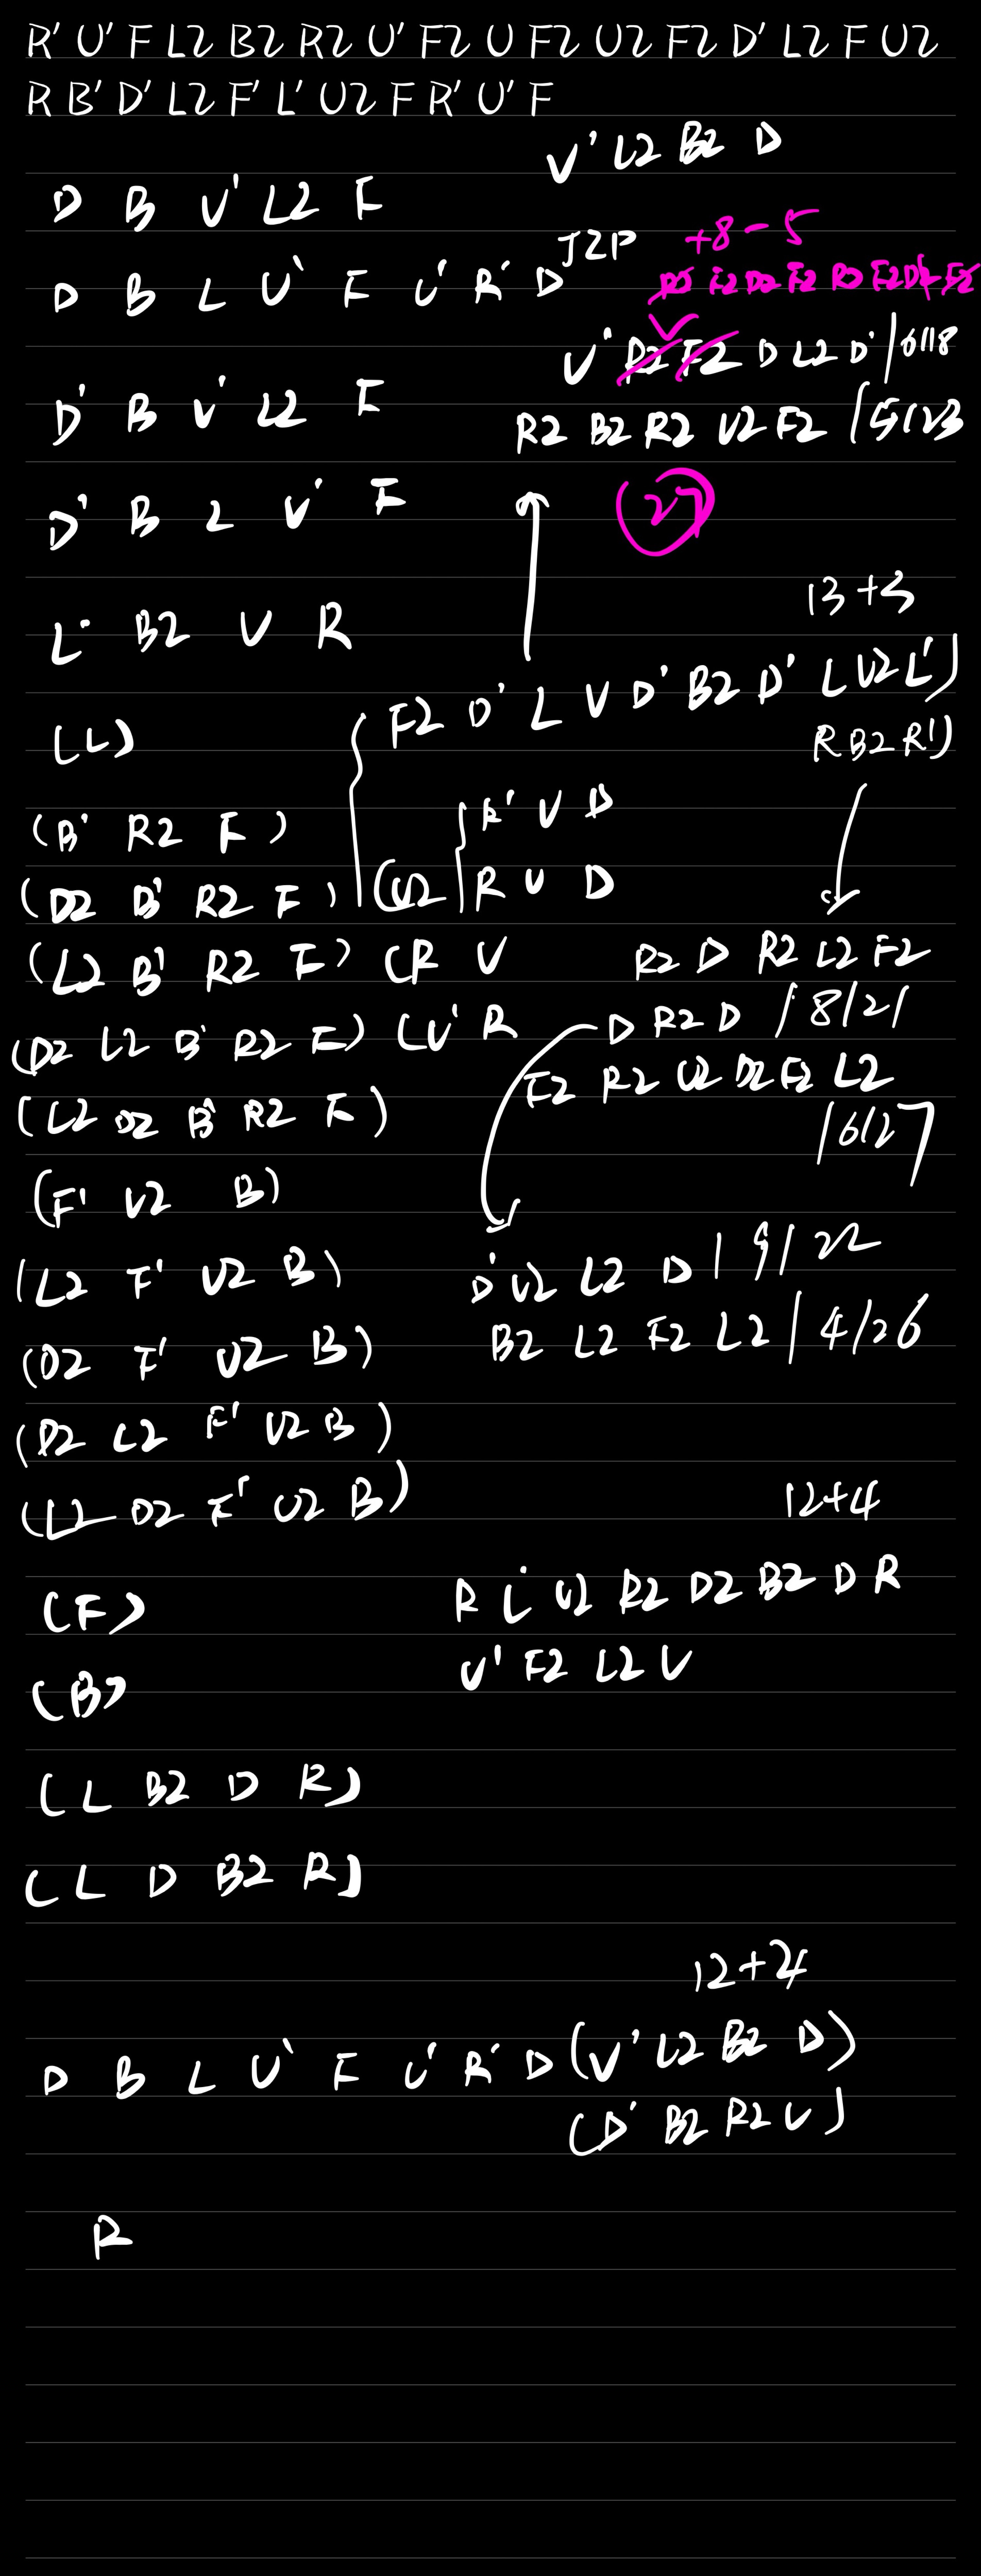 R' U' F L2 B2 R2 U' F2 U F2 U2 F2 D' L2 F U2
R B' D' L2 F' L' U2 F R' U' F
U' L2 B2 D
D B U' L2 F
JZP +8-5
D B L U' F U' R' D
U' R2 F2 D L2 D' / 6118
D' B U' L2 F
R2 B2 R2 U2 F2 / 5123
D' B 2 U' F
27
13+3
L' B2 U R
F2 D' L U D' B2 D' L (U2 L')
(L)
R B2 R')
(B' R2 F)
R' U D
(D2 B' R2 F) (U2 R U D
(L2 B' R2 F) (R U
R2 D R2 L2 F2
D R2 D / 8/21
(D2 L2 B' R2 F) (U' R
F2 R2 U2 D2 F2 L2
(L2 D2 B' R2 F)
/6/27
(F' U2 B)
(L2 F' U2 B)
D' U2 L2 D / 9/22
(D2 F' U2 B)
B2 L2 F2 L2 / 4/26
(D2 L2 F' U2 B)
(L2 D2 F' U2 B)
12+4
(F)
R L' U2 R2 D2 B2 D R
U' F2 L2 U
(B)
(L B2 D R)
(L D B2 R)
12+4
D B L U' F U' R' D (U' L2 B2 D)
(D' B2 R2 U)
R